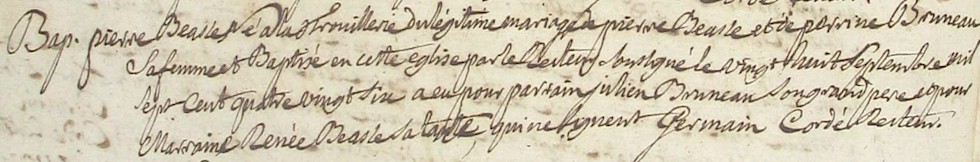 Bap. pierre Beasse Né a la Trouillerie du légitime mariage de pierre Beasse et de perrine Bruneau
sa femme et Baptisé en cette eglise par le Recteur soussigné le vingt huit Septembre mil
sept cent quatre vingt six a eu pour parrain julien Bruneau son grand pere et pour
Marraine Renée Beasse sa tante, qui ne signent Germain Cordé Recteur.